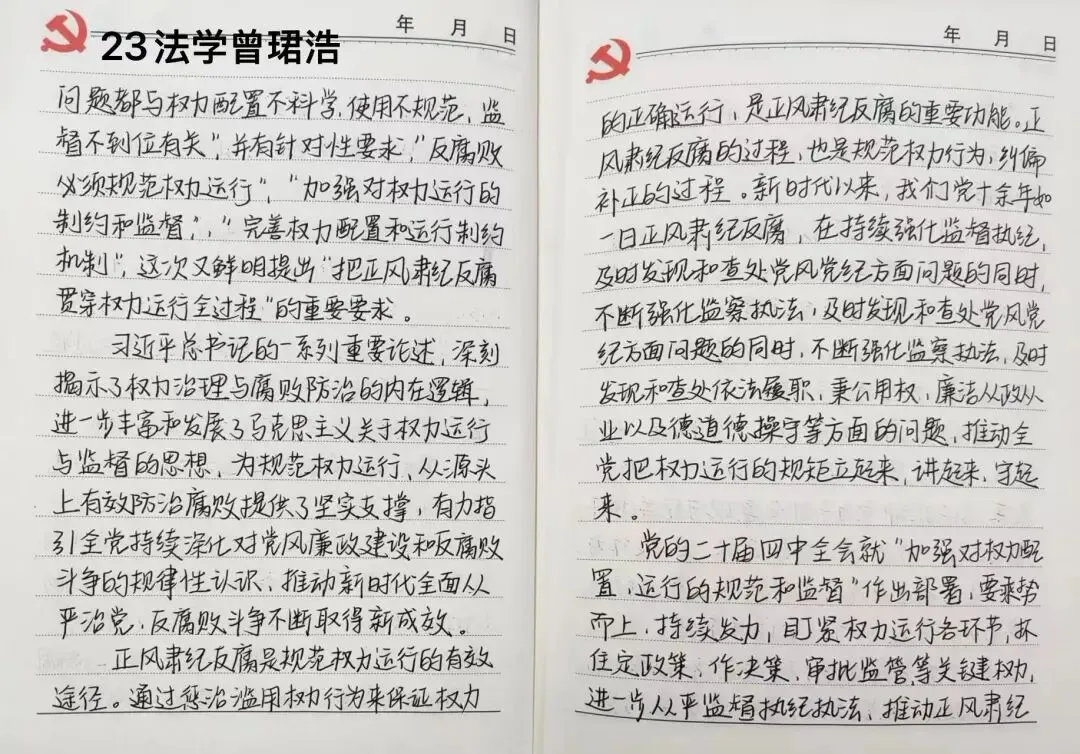 23法学曾珺浩
年 月 日
问题都与权力配置不科学、使用不规范、监
督不到位有关”，并有针对性要求，“反腐败
必须规范权力运行”，“加强对权力运行的
制约和监督”，“完善权力配置和运行制约
机制”，这次又鲜明提出“把正风肃纪反腐
贯穿权力运行全过程”的重要要求。
习近平总书记的一系列重要论述，深刻
揭示了权力治理与腐败防治的内在逻辑，
进一步丰富和发展了马克思主义关于权力运行
与监督的思想，为规范权力运行、从源头
上有效防治腐败提供了坚实支撑，有力指
引全党持续深化对党风廉政建设和反腐败
斗争的规律性认识，推动新时代全面从
严治党、反腐败斗争不断取得新成效。
正风肃纪反腐是规范权力运行的有效
途径。通过惩治滥用权力行为来保证权力
年 月 日
的正确运行，是正风肃纪反腐的重要功能。正
风肃纪反腐的过程，也是规范权力行为，纠偏
补正的过程。新时代以来，我们党十余年如
一日正风肃纪反腐，在持续强化监督执纪，
及时发现和查处党风党纪方面问题的同时，
不断强化监察执法，及时发现和查处党风党
纪方面问题的同时，不断强化监察执法，及时
发现和查处依法履职，秉公用权，廉洁从政从
业以及德道德操守等方面的问题，推动全
党把权力运行的规矩立起来，讲起来，守起
来。
党的二十届四中全会就“加强对权力配
置、运行的规范和监督”作出部署，要乘势
而上，持续发力，盯紧权力运行各环节，抓
住定政策、作决策、审批监管等关键权力，
进一步从严监督执纪执法，推动正风肃纪